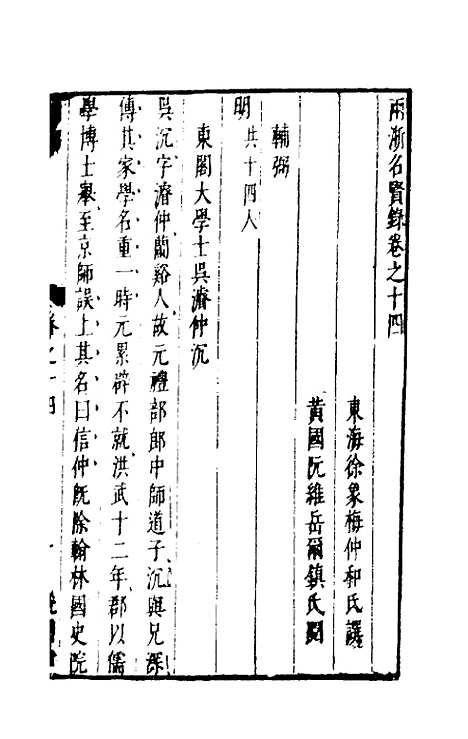 兩浙名賢錄卷之十四
東海徐象梅仲和氏譔
黃國阮維岳爾鎮氏閱
輔弼
明 共十四人
東閣大學士吳濬仲沉
吳沉字濬仲蘭谿人故元禮部郎中師道子沉與兄深
傳其家學名重一時元累辟不就洪武十二年郡以儒
學博士舉至京師誤上其名曰信仲既除翰林國史院
卷之十四